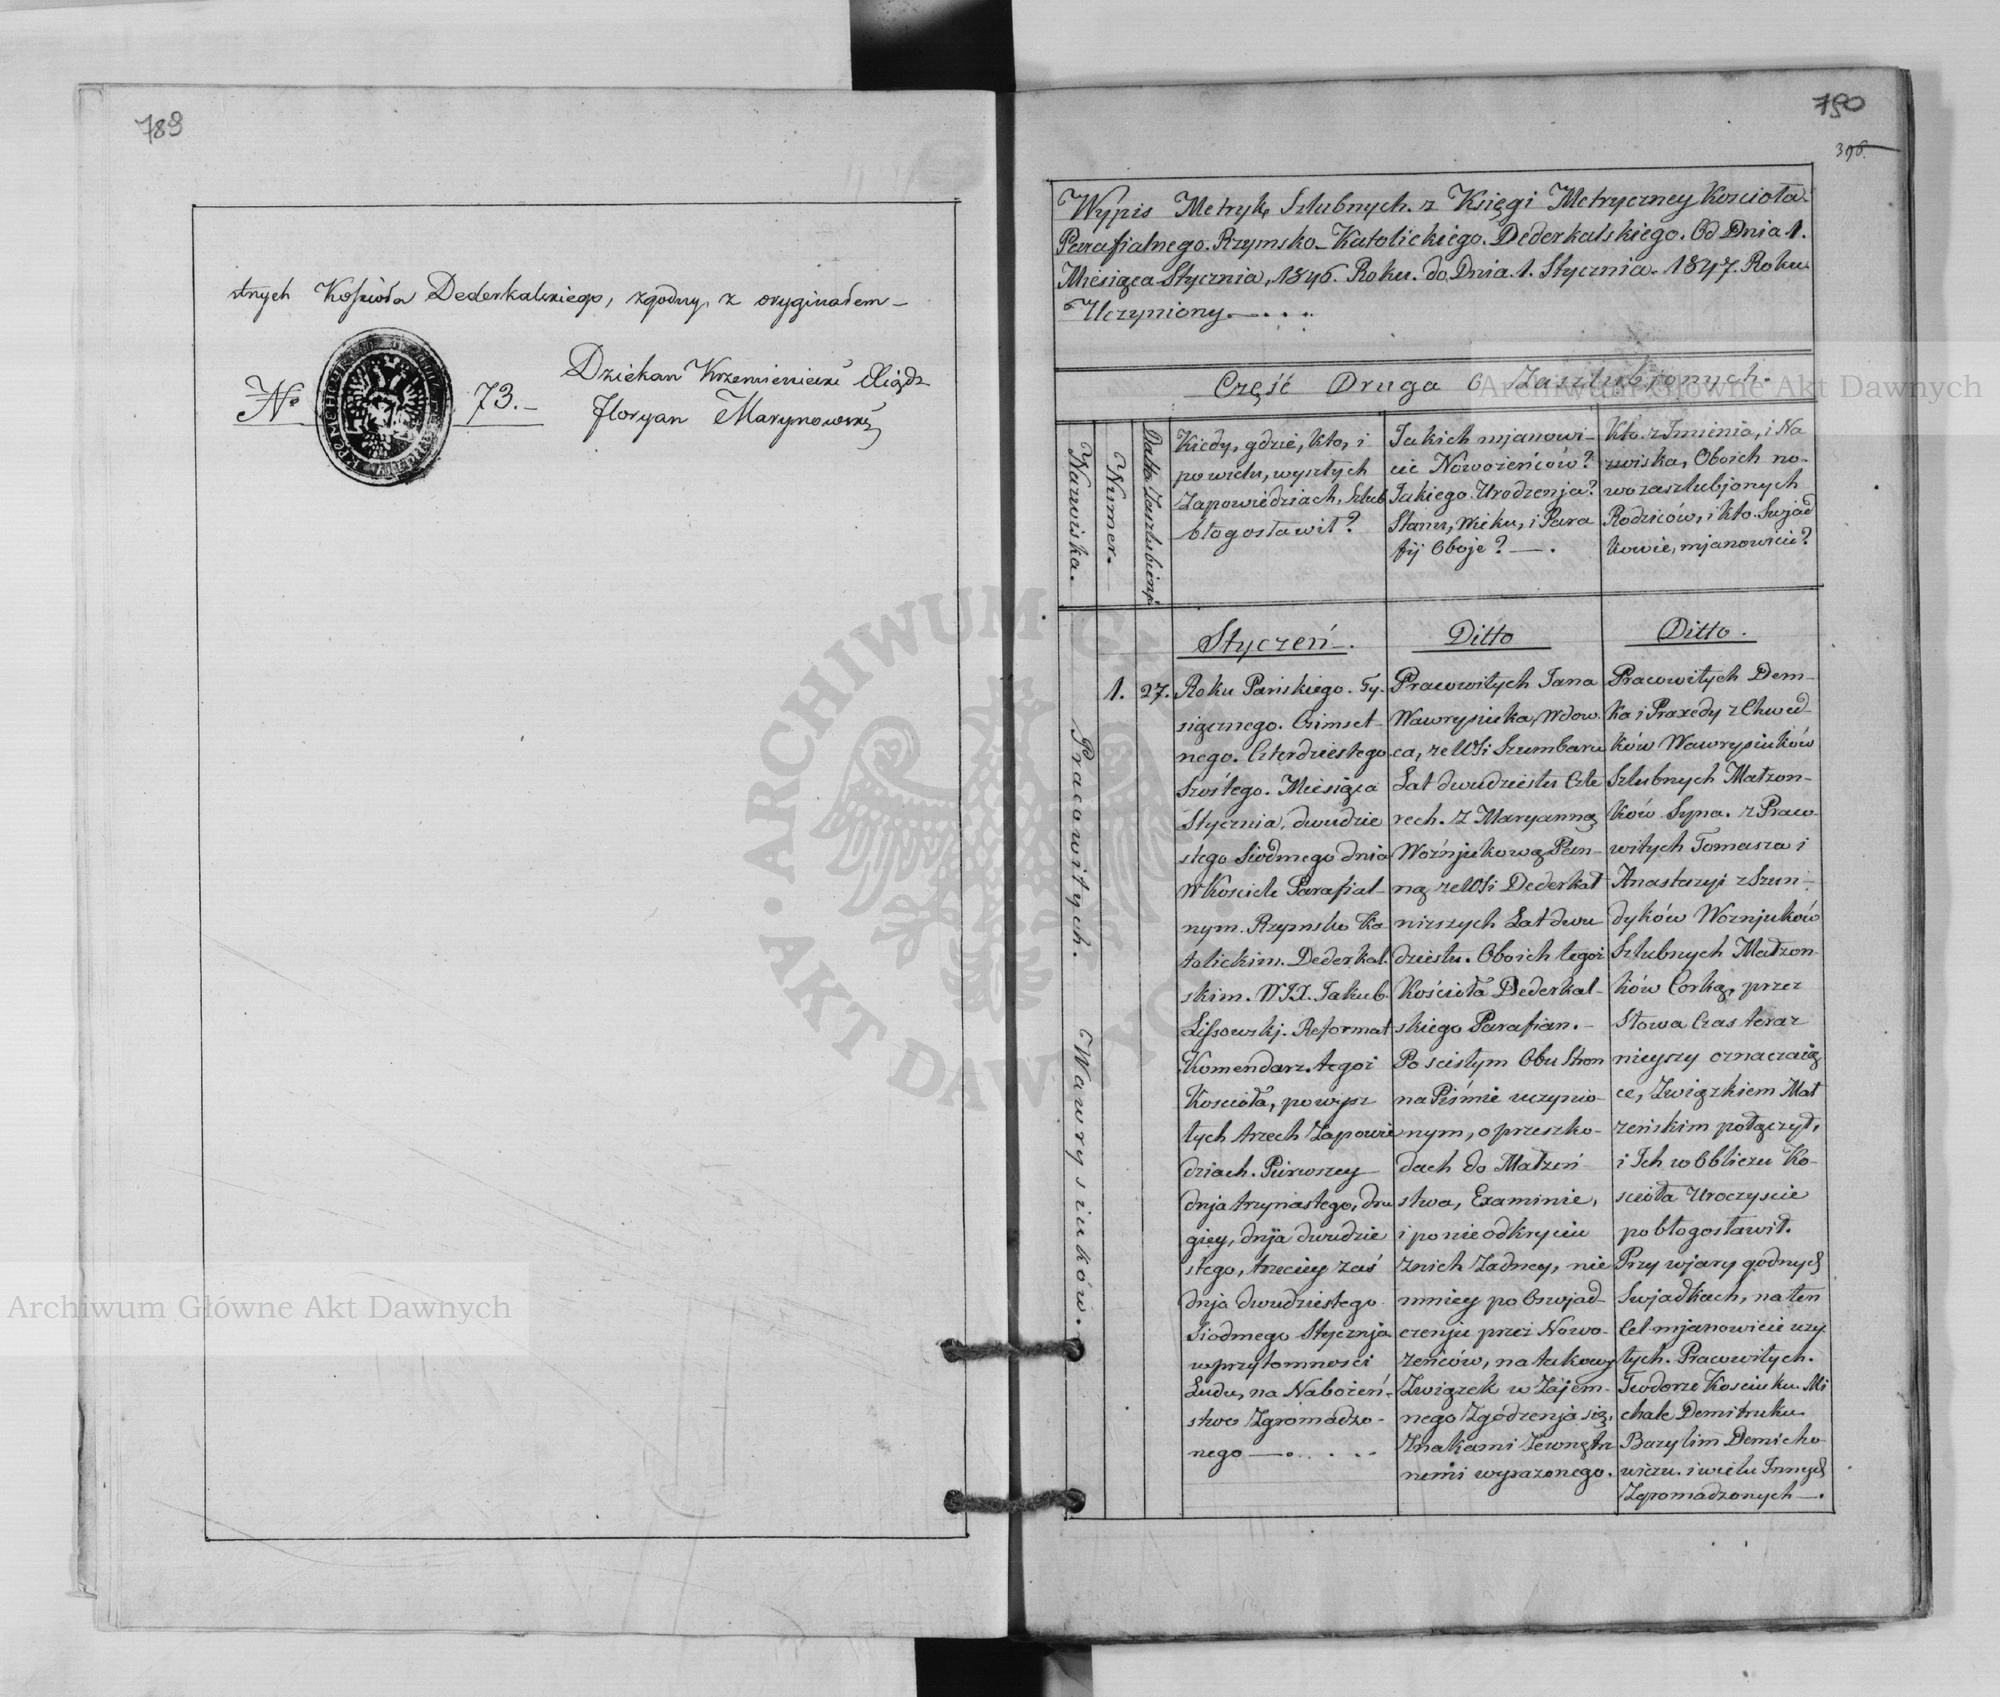 789
stnych Kościoła Dederkalskiego, zgodny z oryginałem –
Nº 73. –
Dziekan Krzemieniecki Xiądz
Floryan Marynowski
790
396.
Wypis Metryk Szlubnych z Księgi Metryczney Kościoła
Parafialnego. Rzymsko-Katolickiego. Dederkalskiego. Od Dnia 1.
Miesiąca Stycznia, 1846. Roku. do Dnia. 1. Stycznia. 1847. Roku.
Uczyniony.
Część Druga O Zaszlubionych.
Nazwiska.
Numer.
Data Zaszlubienia
Kiedy, gdzie, kto, i
po wielu, wyszłych
Zapowiedziach, Szlub
błogosławił?
Jakich mjanowi-
cie Nowożeńców?
Jakiego Urodzenja?
Stanu, Wieku, i Para
fij Oboje? —.
Kto. z Imienia, i Na
zwiska, Oboich no-
wozaszlubjonych
Rodziców, i kto. Swjad
kowie, mjanowicie?
Styczeń.
Ditto
Ditto.
Pracowitych. Wawrysiuków.
1.
27.
Roku Pańskiego. Ty-
siącznego. Ośmset-
nego. Czterdziestego
Szóstego. Miesiąca
Stycznia, dwudzie
stego Siódmego dnia
W Kosciele Parafial-
nym. Rzymsko Ka
tolickim. Dederkal.
skim. WJX. Jakub.
Lissowskj. Reformat
Komendarz. tegoż
Koscioła, po wysz
łych trzech Zapowie
dziach. Pierwszey
dnja trzynastego, dru
giey, dnja dwudzie
stego, trzeciey zaś
dnja dwudziestego
Siodmego Stycznja
w przytomnosci
Ludu, na Nabożeń-
stwo Zgromadzo-
nego —
Pracowitych Jana
Wawrysiuka, Wdow.
ca, ze Wsi Szumbaru
Lat dwudziestu Czte
rech. z Maryanną
Woźnjukową Pan-
ną ze Wsi Dederkał
niższych Lat dwu
dziestu. Oboich tegoż
Kościoła Dederkal-
skiego Parafian. –
Po scisłym Obu Stron
na Piśmie uczynio-
nym, o przeszko-
dach do Małżeń
stwa, Examinie,
i po nieodkryciu
Znich Żadney, nie
mniey po Oswjad-
czenju przez Nowo-
żeńców, na takowy
Związek w Zajem-
nego Zgodzenja się,
Znakami Zewnętrz
nemi wyrażonego.
Pracowitych Dem-
ka i Praxedy z Chwed-
ków Wawrysiuków
Szlubnych Małżon-
ków Syna. z Praco-
witych Tomasza i
Anastazyi z Szun-
dyków Woznjuków
Szlubnych Małżon-
ków Corką, przez
Słowa Czas teraz
nieyszy oznaczają
ce, Związkiem Mał
żeńskim połączył,
i Ich w Obliczu Ko-
scioła Uroczyscie
pobłogosławił.
Przy wjary godnych
Swjadkach, na ten
Cel mjanowicie uży
tych. Pracowitych.
Teodorze Kosciuku Mi
chale Demitruku
Bazylim Demicho
wiczu. i wielu Innych
Zgromadzonych —.
ARCHIWUM GŁÓWNE AKT DAWNYCH
Archiwum Główne Akt Dawnych
Archiwum Główne Akt Dawnych